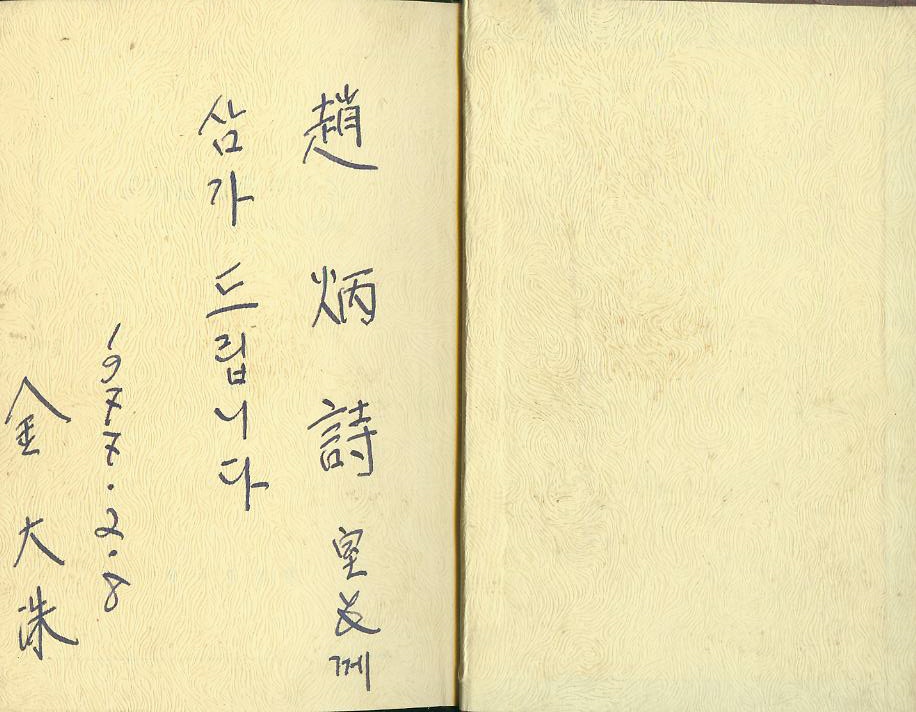 趙炳詩 室長께
삼가 드립니다
1977.2.8
金大洙